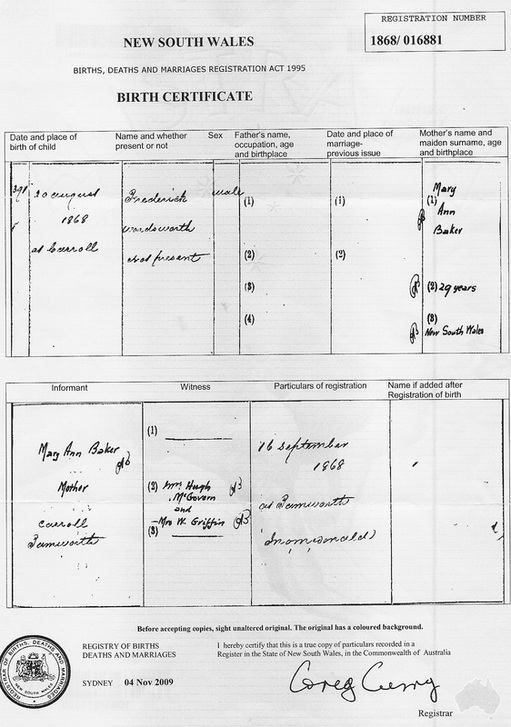 REGISTRATION NUMBER
1868/ 016881
NEW SOUTH WALES
BIRTHS, DEATHS AND MARRIAGES REGISTRATION ACT 1995
BIRTH CERTIFICATE
Date and place of birth of child
Name and whether present or not
Sex
Father's name, occupation, age and birthplace
Date and place of marriage- previous issue
Mother's name and maiden surname, age and birthplace
20 August
1868
at Carroll
Frederick
Wordsworth
Not present
male
(1)
(2)
(3)
(4)
(i)
(2)
Mary
(1) Ann
Baker
(2) 29 years
(3)
New South Wales
Informant
Witness
Particulars of registration
Name if added after Registration of birth
Mary Ann Baker
Mother
Carroll
Tamworth
(1)
(2) Mrs Hugh
McGovern
and
Mrs W. Griffin
(3)
16 September
1868
at Tamworth
Before accepting copies, sight unaltered original. The original has a coloured background.
REGISTRY OF BIRTHS
DEATHS AND MARRIAGES
SYDNEY 04 Nov 2009
I hereby certify that this is a true copy of particulars recorded in a
Register in the State of New South Wales, in the Commonwealth of Australia
Greg Curry
Registrar